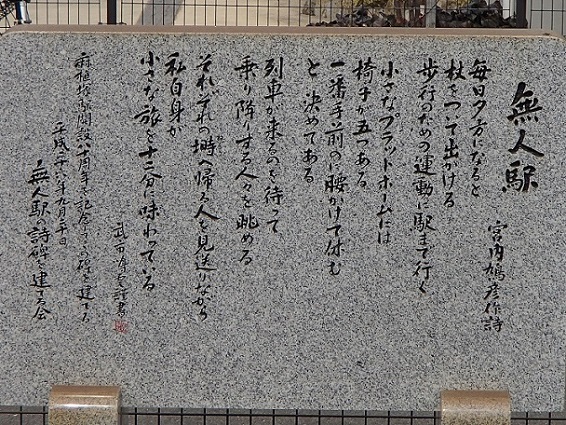 無人駅
宮内鳩彦作詩
毎日夕方になると
杖をついて出かける
歩行のための運動に駅まで行く
小さなプラットホームには
椅子が五つある
一番手前の腰かけて休む
と決めてある
列車が来るのを待って
乗り降りする人々を眺める
それぞれの塒へ帰る人を見送りながら
私自身が
小さな旅を十二分に味わっている
書
麻植塚駅開設八十周年を記念しこの碑を建てる
平成二十八年九月
無人駅の詩碑を建てる会